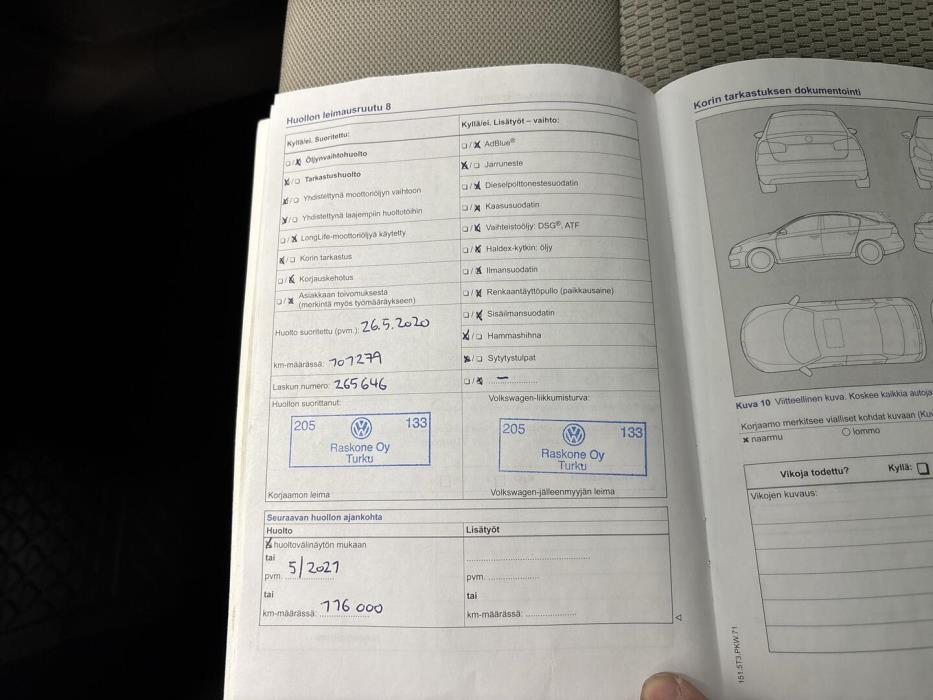 Huollon leimausruutu 8
Kyllä/ei. Suoritettu:
☐/☒ Öljynvaihtohuolto
☒/☐ Tarkastushuolto
☒/☐ Yhdistettynä moottoriöljyn vaihtoon
☒/☐ Yhdistettynä laajempiin huoltotöihin
☐/☒ LongLife-moottoriöljyä käytetty
☒/☐ Korin tarkastus
☐/☒ Korjauskehotus
☐/☒ Asiakkaan toivomuksesta
(merkintä myös työmääräykseen)
Huolto suoritettu (pvm.): 26.5.2020
km-määrässä: 107279
Laskun numero: 265646
Huollon suorittanut:
205 133
Raskone Oy
Turku
Korjaamon leima
Kyllä/ei. Lisätyöt – vaihto:
☐/☒ AdBlue®
☒/☐ Jarruneste
☐/☒ Dieselpolttonestesuodatin
☐/☒ Kaasusuodatin
☐/☒ Vaihteistoöljy: DSG®, ATF
☐/☒ Haldex-kytkin: öljy
☐/☒ Ilmansuodatin
☐/☒ Renkaantäyttöpullo (paikkausaine)
☐/☒ Sisäilmansuodatin
☒/☐ Hammashihna
☒/☐ Sytytystulpat
☐/☒ –
Volkswagen-liikkumisturva:
205 133
Raskone Oy
Turku
Volkswagen-jälleenmyyjän leima
Seuraavan huollon ajankohta
Huolto
☒ huoltovälinäytön mukaan
tai
pvm. 5/2021
tai
km-määrässä: 116 000
Lisätyöt
pvm.
tai
km-määrässä:
Korin tarkastuksen dokumentointi
Kuva 10 Viitteellinen kuva. Koskee kaikkia autoja
Korjaamo merkitsee vialliset kohdat kuvaan
x naarmu O lommo
Vikoja todettu? Kyllä: ☐
Vikojen kuvaus:
151.5T3.PKW.71